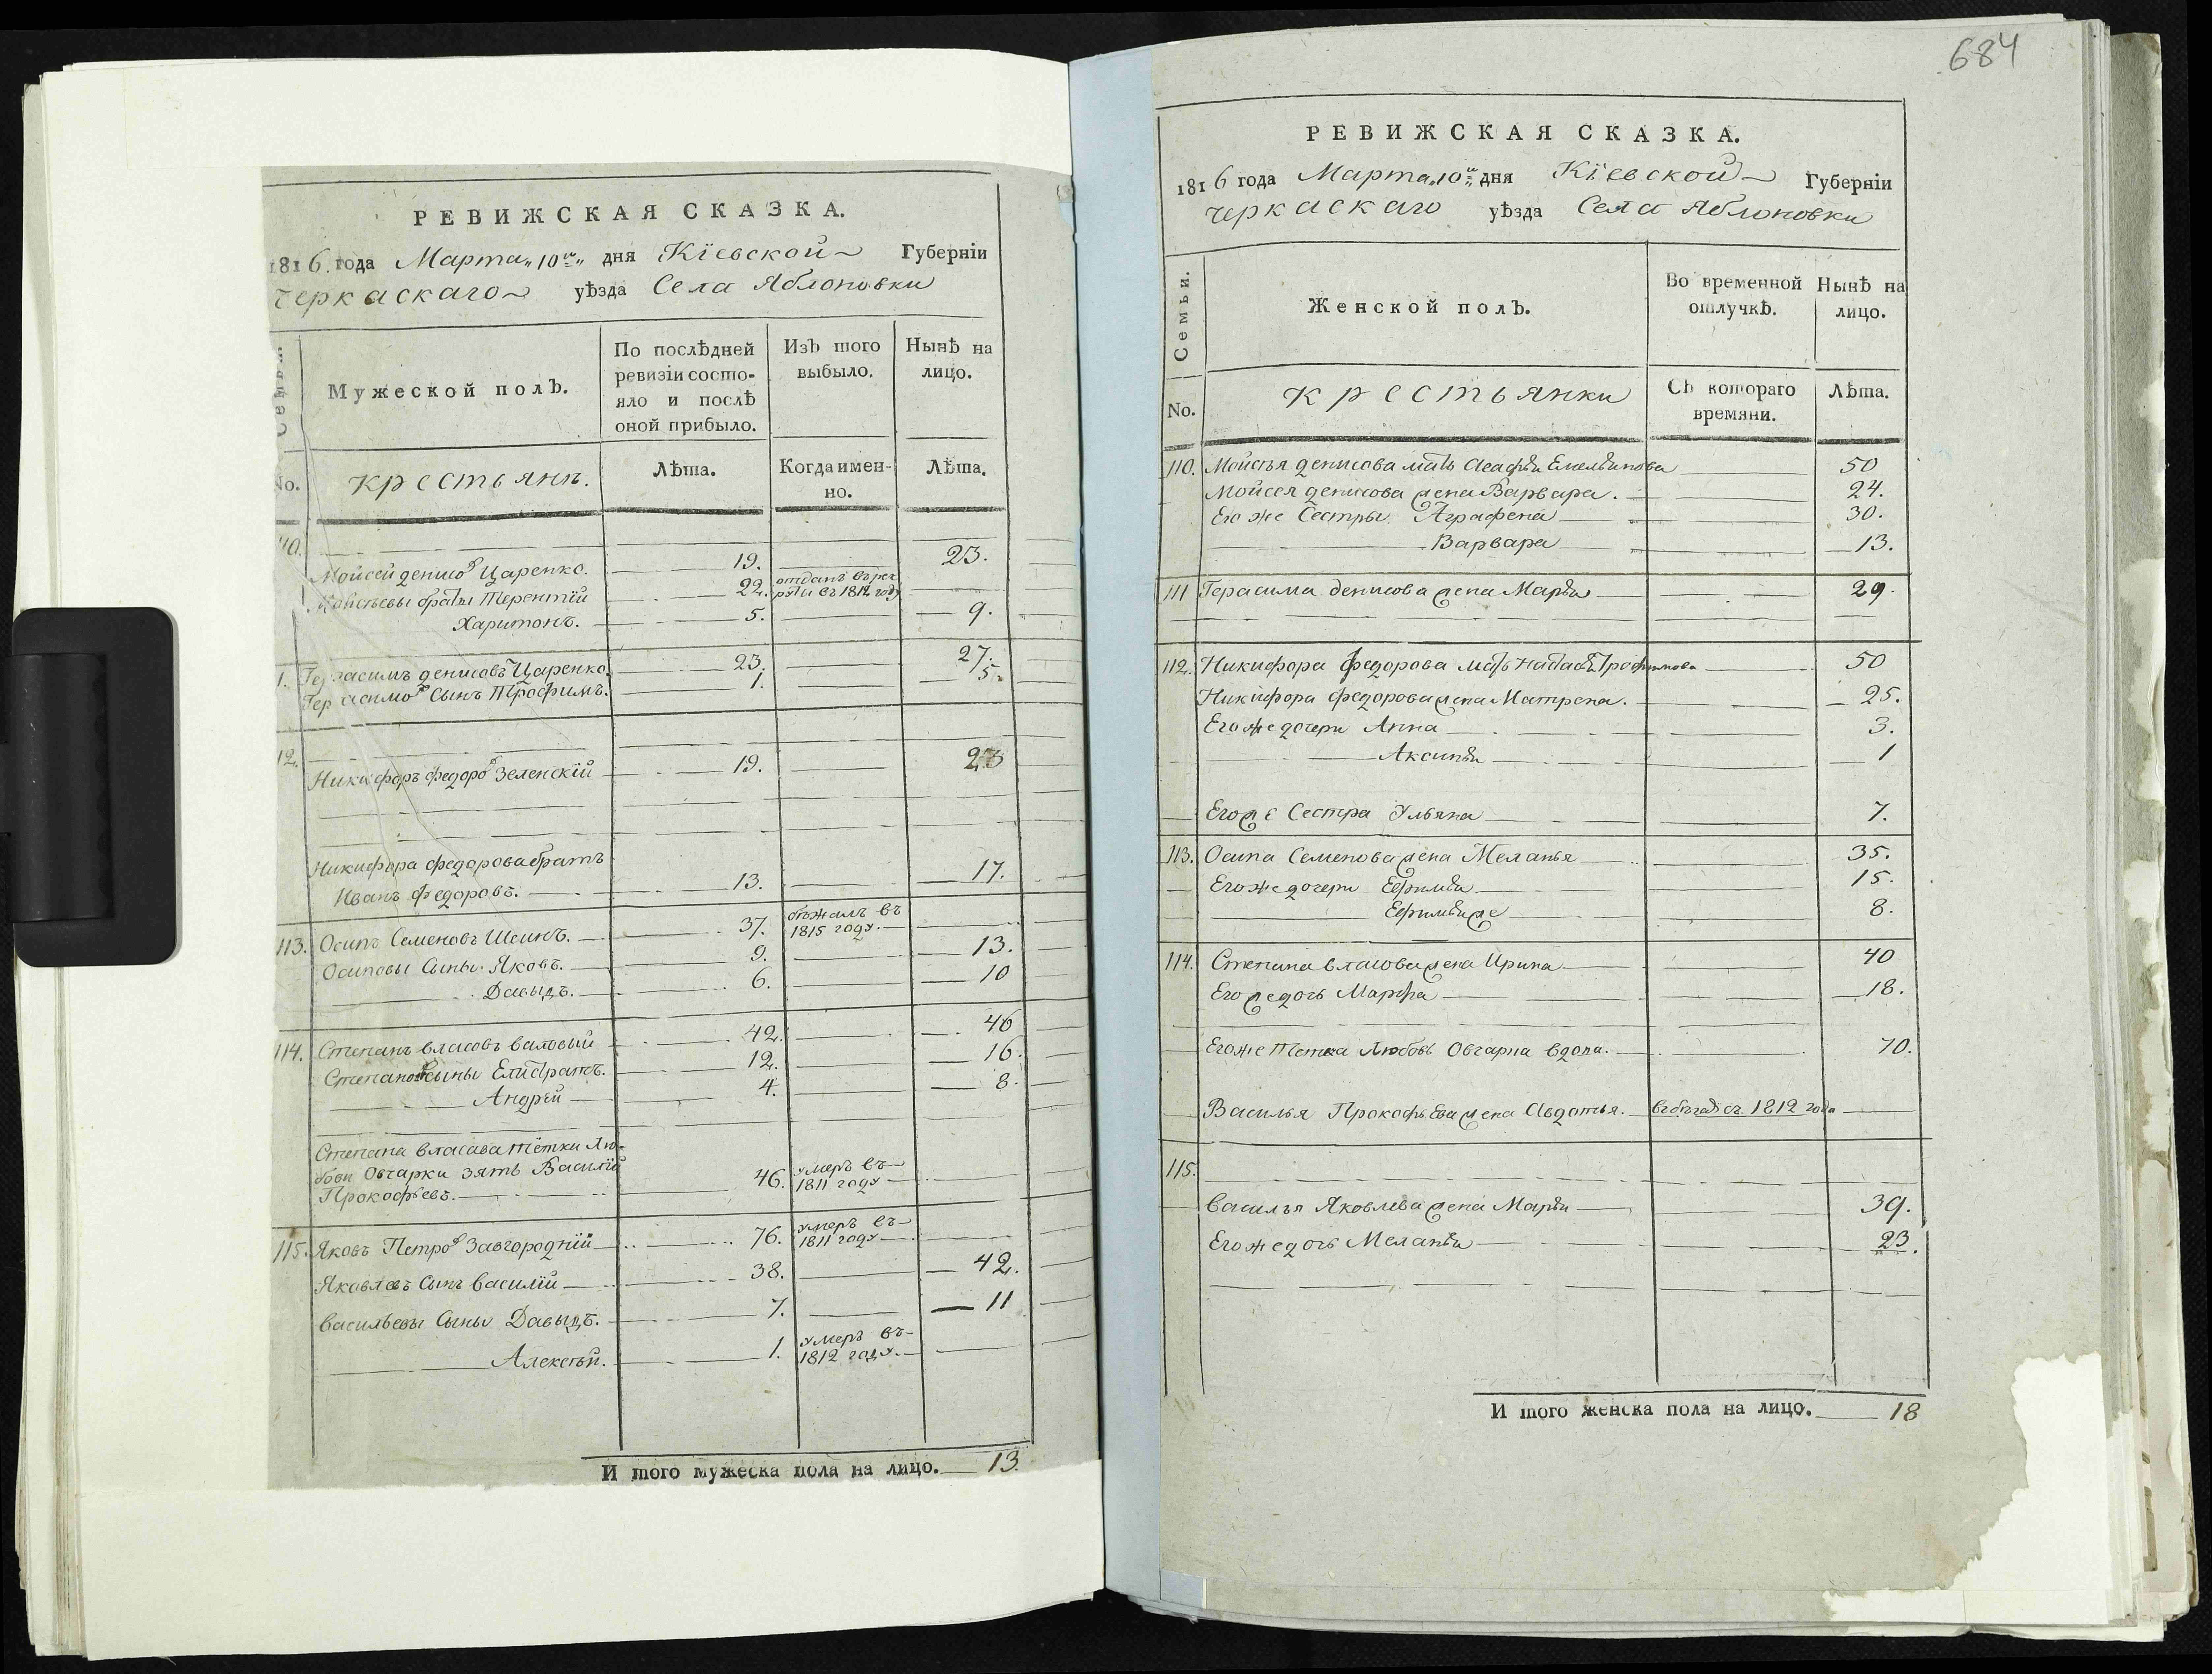 684
РЕВИЖСКАЯ СКАЗКА.
1816. года Марта „10го„ дня Кіевской Губерніи
Черкаскаго уѣзда Села Яблоновки
Семьи.
Мужеской полЪ.
По послѣдней ревизіи состо-
яло и послѣ
оной прибыло.
ИзЪ того выбыло.
Нынѣ на лицо.
No.
крестьянъ.
Лѣта.
Когда имен-
но.
Лѣта.
110.
Мойсей денисов Царенко. 19. 23.
Мойсѣевы браты Терентій 22. отданъ въ рек
руты въ 1812 году
Харитонъ. 5. 9.
Герасимъ денисовъ Царенко. 23. 27.
Герасимов Сынъ Трофимъ. 1. 5.
12.
Никифоръ федоров Зеленскій 19. 23
Никифора федорова братъ
Иванъ федоровъ. 13. 17.
113. Осипъ Семеновъ Шеинъ. 37. бѣжалъ въ
1815 году.
Осиповы Сыны Яковъ. 9. 13.
Давыдъ. 6. 10
114. Степанъ власовъ валовый 42. 46
Степановы сыны Елистратъ. 12. 16.
Андрей 4. 8.
Степана власава тётки Лю-
бови Овчарки зять Василій
Прокофьевъ. 46. умеръ въ
1811 году
115. Яковъ Петров Завгородній 76. умеръ въ
1811 году
Яковлевъ Сынъ василій 38. 42.
васильевы Сыны Давыдъ. 7. 11
Алексѣй. 1. умеръ въ
1812 году.
И того мужеска пола на лицо. 13.
РЕВИЖСКАЯ СКАЗКА.
1816 года Марта „10го„ дня Кіевской Губерніи
Черкаскаго уѣзда Села Яблоновки
Семьи.
Женской полЪ.
Во временной отлучкѣ.
Нынѣ на лицо.
No.
крестьянки
СЪ котораго времяни.
Лѣта.
110. Мойсѣя денисова мать Агафья Емельянова 50
Мойсея денисова жена Варвара. 24.
Его же Сестры Аграфена 30.
Варвара 13.
111 Герасима денисова жена Марья 29.
112. Никифора федорова мать Настасья Трофимова 50
Никифора федорова жена Матрена. 25.
Его же дочери Анна 3.
Аксинья 1
Его же Сестра Ульяна 7.
113. Осипа Семенова жена Меланья 35.
Его же дочери Ефимья 15.
Ефимья же 8.
114. Степана власова жена Ирина 40
Его же дочь Марфа 18.
Его же тетка Любовь Овчарка вдова. 70.
Василья Прокофьева жена Авдотья. въ бѣгахъ съ 1812 года
115.
василья Яковлева жена Марья 39.
Его же дочь Меланья 23.
И того женска пола на лицо. 18